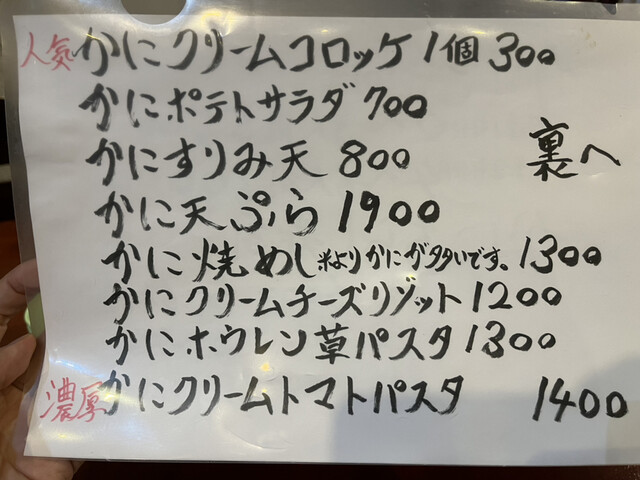 人気 かにクリームコロッケ1個300
かにポテトサラダ700
かにすりみ天800
裏へ
かに天ぷら1900
かに焼めし米よりかにが多いです。1300
かにクリームチーズリゾット1200
かにホウレン草パスタ1300
濃厚 かにクリームトマトパスタ 1400